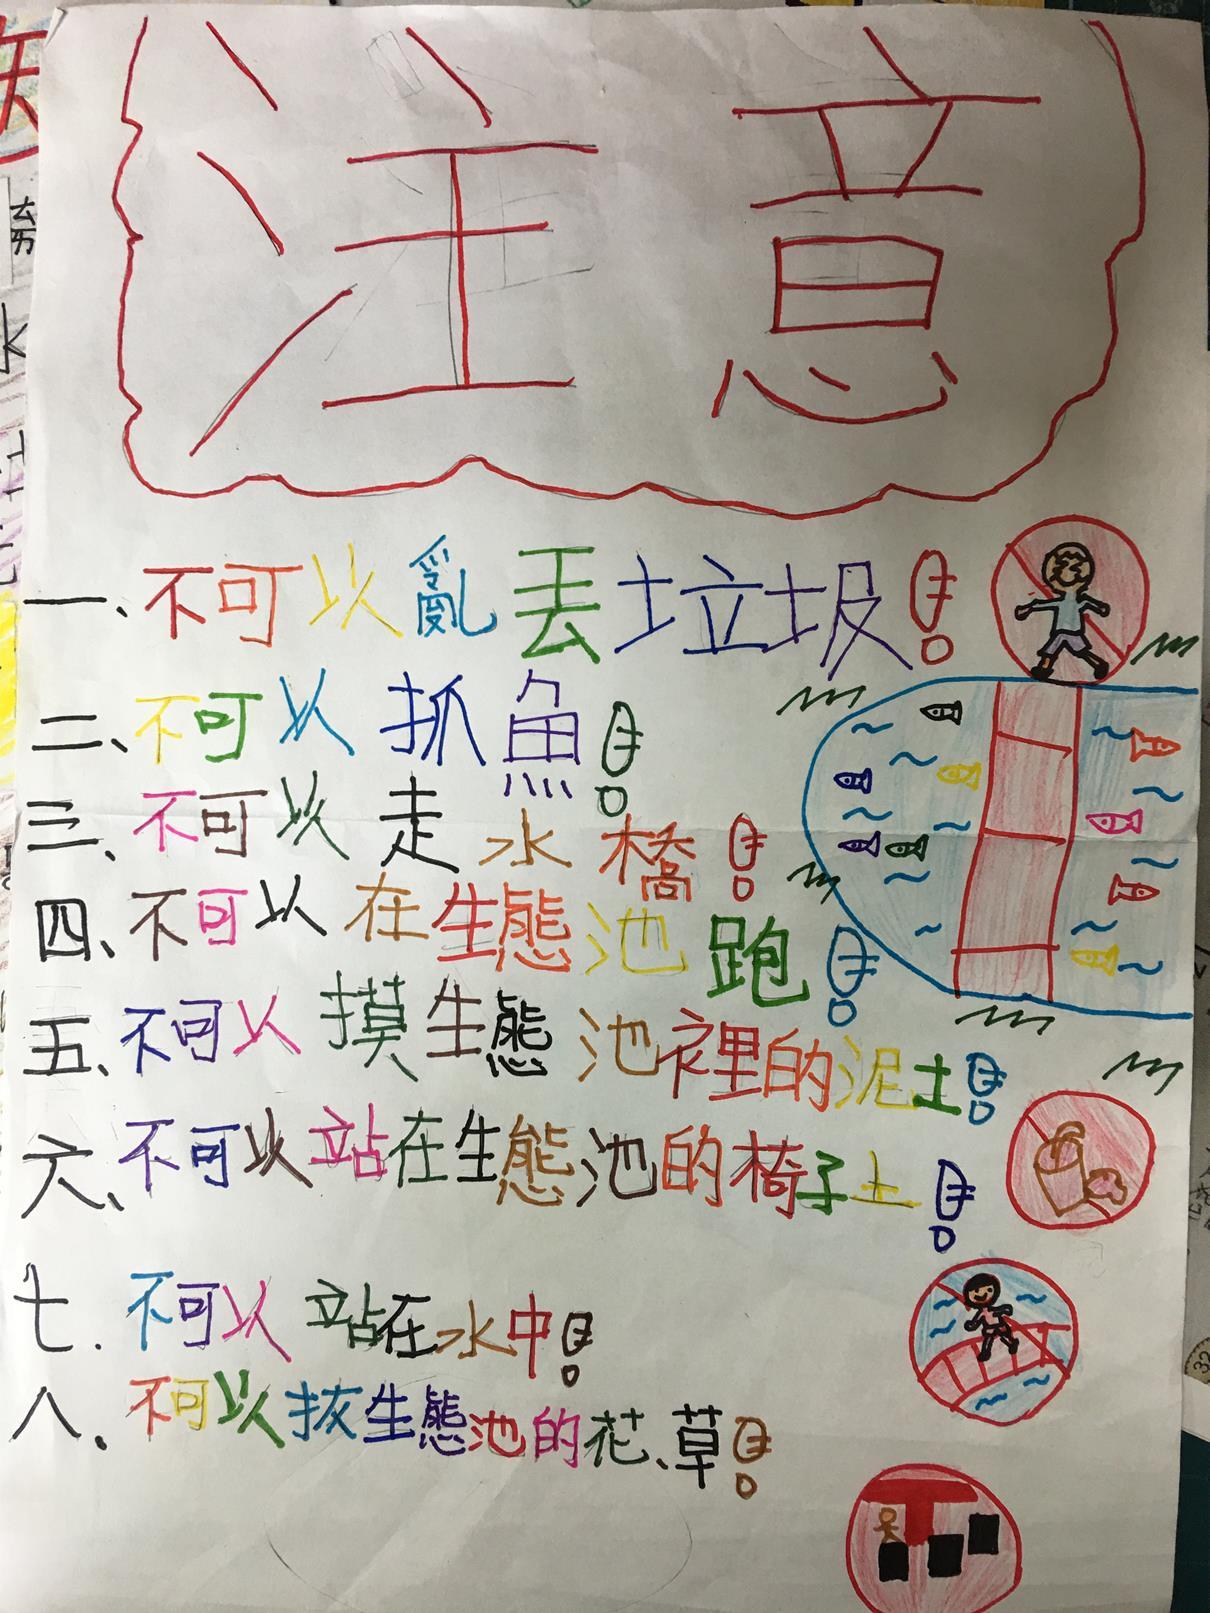 注意
一、不可以亂丟垃圾!
二、不可以抓魚!
三、不可以走水橋!
四、不可以在生態池跑!
五、不可以摸生態池裡的泥土!
六、不可以站在生態池的椅子上!
七.不可以站在水中!
八.不可以拔生態池的花、草!